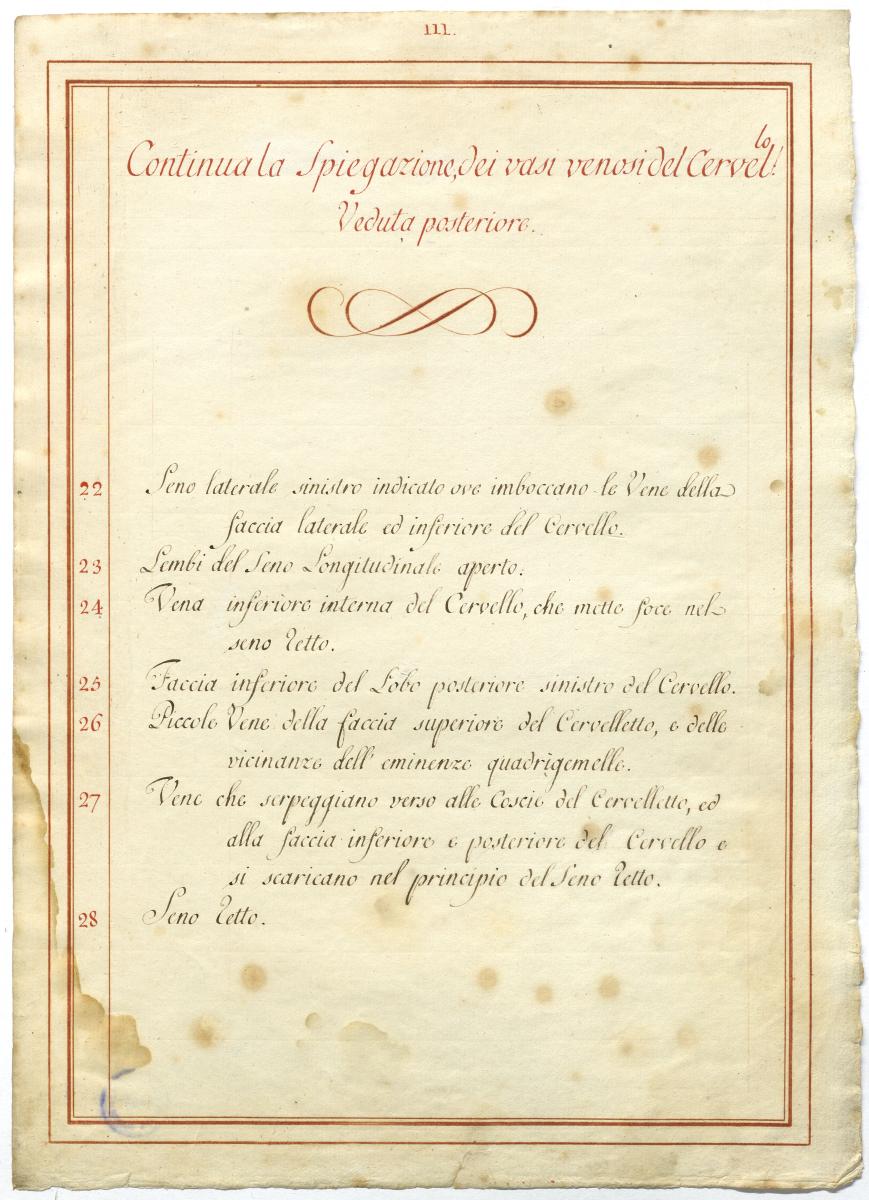 III.
Continua la Spiegazione, dei vasi venosi del Cervel.lo
Veduta posteriore.
22 Seno laterale sinistro indicato ove imboccano le Vene della
faccia laterale ed inferiore del Cervello.
23 Lembi del Seno Longitudinale aperto.
24 Vena inferiore interna del Cervello, che mette foce nel
seno retto.
25 Faccia inferiore del Lobo posteriore sinistro del Cervello.
26 Piccole Vene della faccia superiore del Cervelletto, e delle
vicinanze dell' eminenze quadrigemelle.
27 Vene che serpeggiano verso alle Coscie del Cervelletto, ed
alla faccia inferiore e posteriore del Cervello e
si scaricano nel principio del Seno retto.
28 Seno retto.